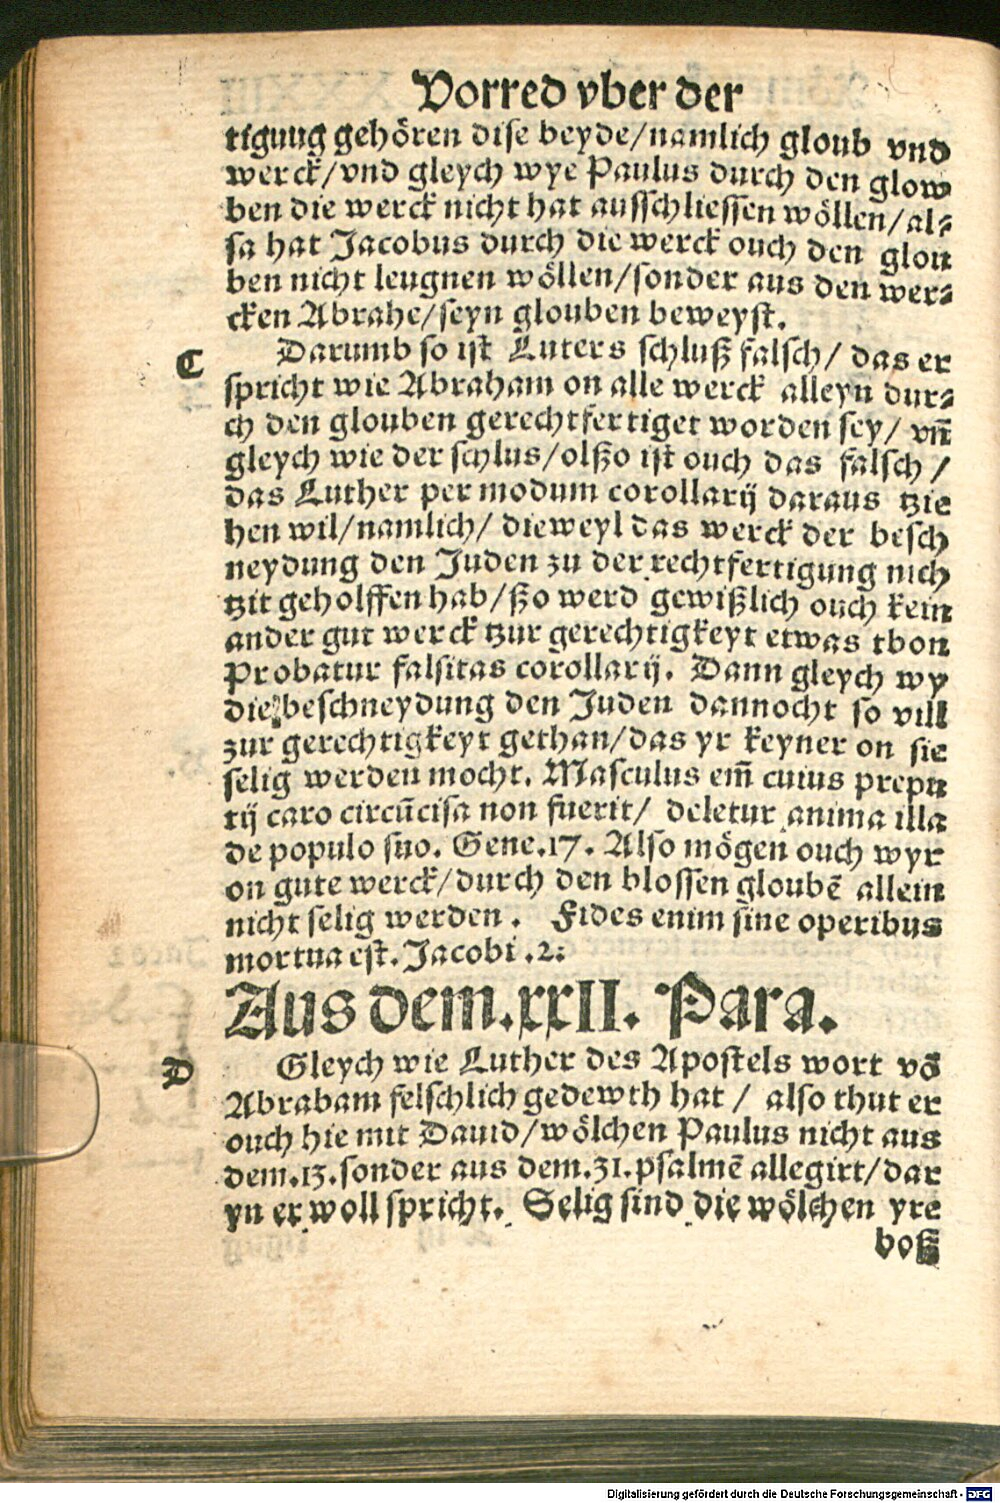 Vorred vber der
tigung gehören dise beyde/namlich gloub vnd
werck/vnd gleych wye Paulus durch den glow
ben die werck nicht hat ausschliessen wöllen/al⸗
sa hat Jacobus durch die werck ouch den glou
ben nicht leugnen wöllen/sonder aus den wer⸗
cken Abrahe/seyn glouben beweyst.
C Darumb so ist Luters schluß falsch/ das er
spricht wie Abraham on alle werck alleyn dur⸗
ch den glouben gerechtfertiget worden sey/ vñ
gleych wie der scylus/olßo ist ouch das falsch/
das Luther per modum corollarij daraus tzie
hen wil/namlich/ dieweyl das werck der besch
neydung den Juden zu der rechtfertigung nich
tzit geholffen hab/ßo werd gewißlich ouch kein
ander gut werck tzur gerechtigkeyt etwas thon
Probatur falsitas corollarij. Dann gleych wy
die beschneydung den Juden dannocht so vill
zur gerechtigkeyt gethan/das yr keyner on sie
selig werden mocht. Masculus em̃ cuius prepu
tij caro circũcisa non fuerit/ deletur anima illa
de populo suo. Gene.17. Also mögen ouch wyr
on gute werck/durch den blossen gloubẽ allein
nicht selig werden. Fides enim sine operibus
mortua est. Jacobi .2:
Aus dem.xxII. Para.
D Gleych wie Luther des Apostels wort võ
Abraham felschlich gedewth hat/ also thut er
ouch hie mit Dauid/wölchen Paulus nicht aus
dem.13.sonder aus dem.31.psalmẽ allegirt/dar
yn er woll spricht. Selig sind die wölchen yre
boß
Digitalisierung gefördert durch die Deutsche Forschungsgemeinschaft - DFG